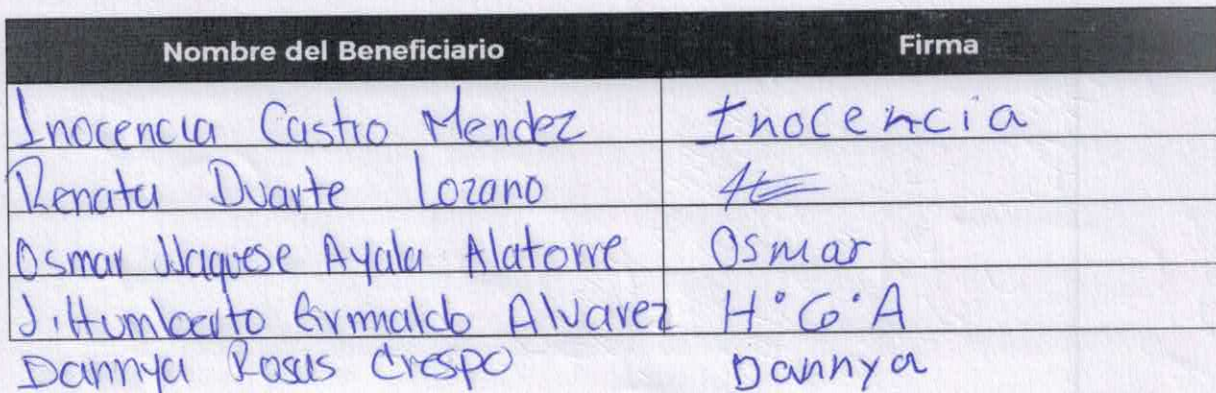 Nombre del Beneficiario Firma
Inocencia Castro Mendez Inocencia
Renata Duarte Lozano
Osmar Ayala Alatorre Osmar
J. Humberto Grimaldo Alvarez H.G.A
Dannya Rosas Crespo Dannya